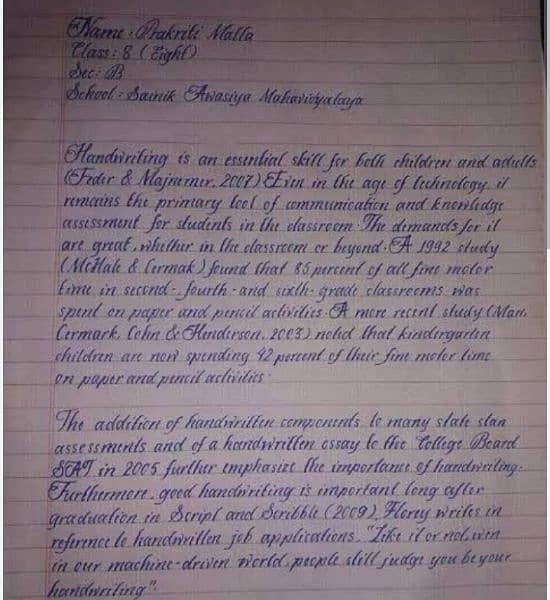 Name : Prakriti Malla
Class : 8 (Eight)
Sec : B
School : Sainik Awasiya Mahavidyalaya
Handwriting is an essential skill for both children and adults
(Feder & Majnemer, 2007) Even in the age of technology, it
remains the primary tool of communication and knowledge
assessment for students in the classroom. The demands for it
are great, whether in the classroom or beyond. A 1992 study
(McHale & Cermak) found that 85 percent of all fine motor
time in second-, fourth- and sixth- grade classrooms was
spent on paper and pencil activities. A more recent study (Marr,
Cermark, Cohn & Henderson, 2003) noted that kindergarten
children are now spending 42 percent of their fine motor time
on paper and pencil activities.
The addition of handwritten components to many state stan
assessments and of a handwritten essay to the College Board
SAT in 2005 further emphasize the importance of handwriting.
Furthermore, good handwriting is important long after
graduation in Script and Scribble (2009), Florey writes in
reference to handwritten job applications, "Like it or not, even
in our machine-driven world, people still judge you be your
handwriting".